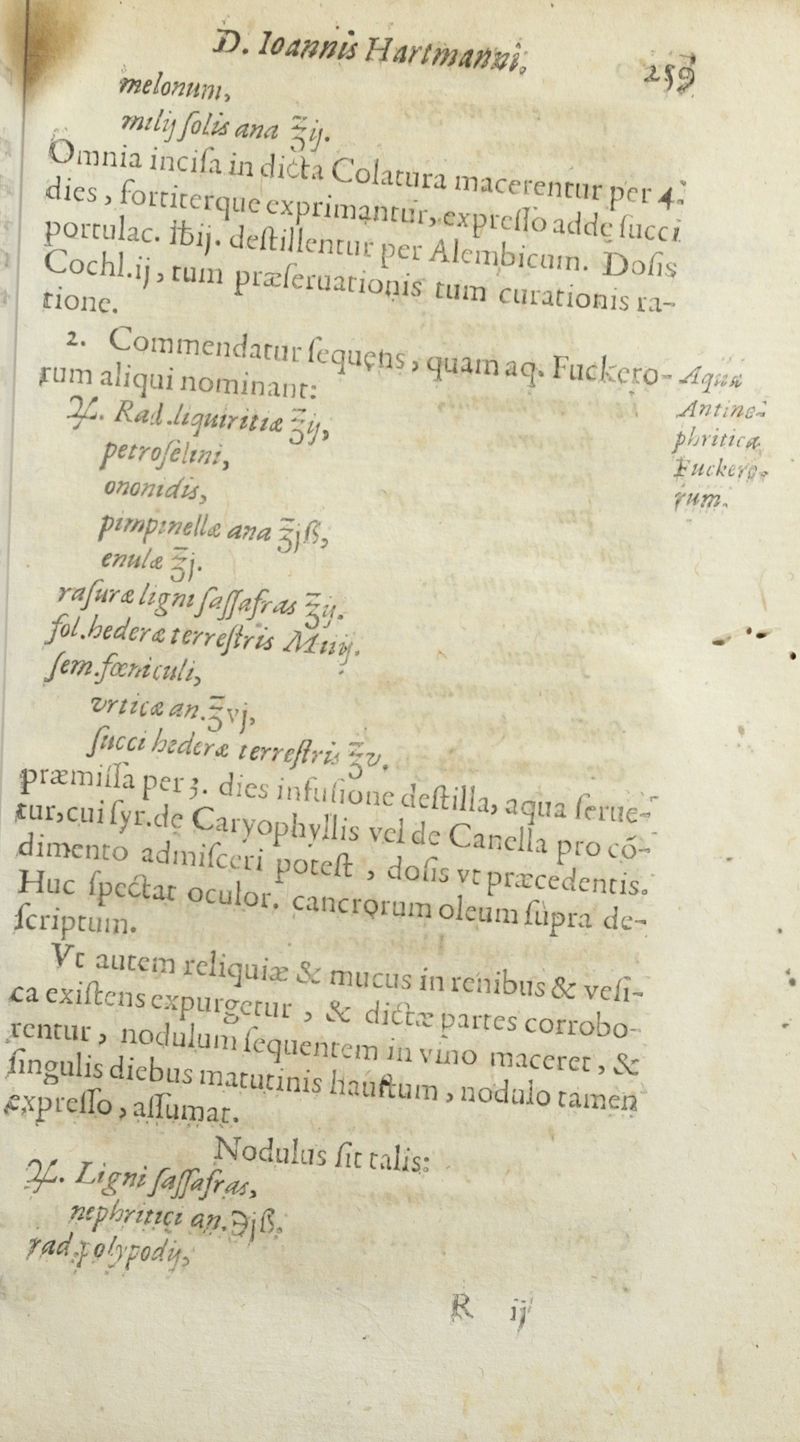 D. Ioannis Hartmanni. 259
melonum,
milij ſolis ana ℥ij.
Omnia inciſa in dicta Colatura macerentur per 4.
dies, fortiterque exprimantur, expreſſo adde ſucci
portulac. ℔ij. deſtillentur per Alembicum. Doſis
Cochl.ij, tum præſeruationis tum curationis ra-
tione.
2. Commendatur ſequens, quam aq. Fuckero-
rum aliqui nominant:
Aqua
Antine-
phritica
Fuckero-
rum.
♃. Rad. liquiritiæ ℥ij,
petroſelini,
ononidis,
pimpinellæ ana ℥jß,
enulæ ℥j.
raſuræ ligni ſaſſafras ℥ij.
fol. hederæ terreſtris Miiij.
ſem. fœniculi,
vrticæ an. ℥vj,
ſucci hederæ terreſtris ℥v.
præmiſſa per 3. dies infuſione deſtilla, aqua ſerue-
tur, cui ſyr. de Caryophyllis vel de Canella pro cõ-
dimento admiſceri poteſt, doſis vt præcedentis.
Huc ſpectat oculor. cancrorum oleum ſupra de-
ſcriptum.
Vt autem reliquiæ & mucus in renibus & veſi-
ca exiſtens expurgetur, & dictæ partes corrobo-
rentur, nodulum ſequentem in vino maceret, &
ſingulis diebus matutinis hauſtum, nodulo tamen
expreſſo, aſſumat.
Nodulus ſit talis:
♃. Ligni ſaſſafras,
nephritici an. ℈jß.
rad. polypodij,
R ij